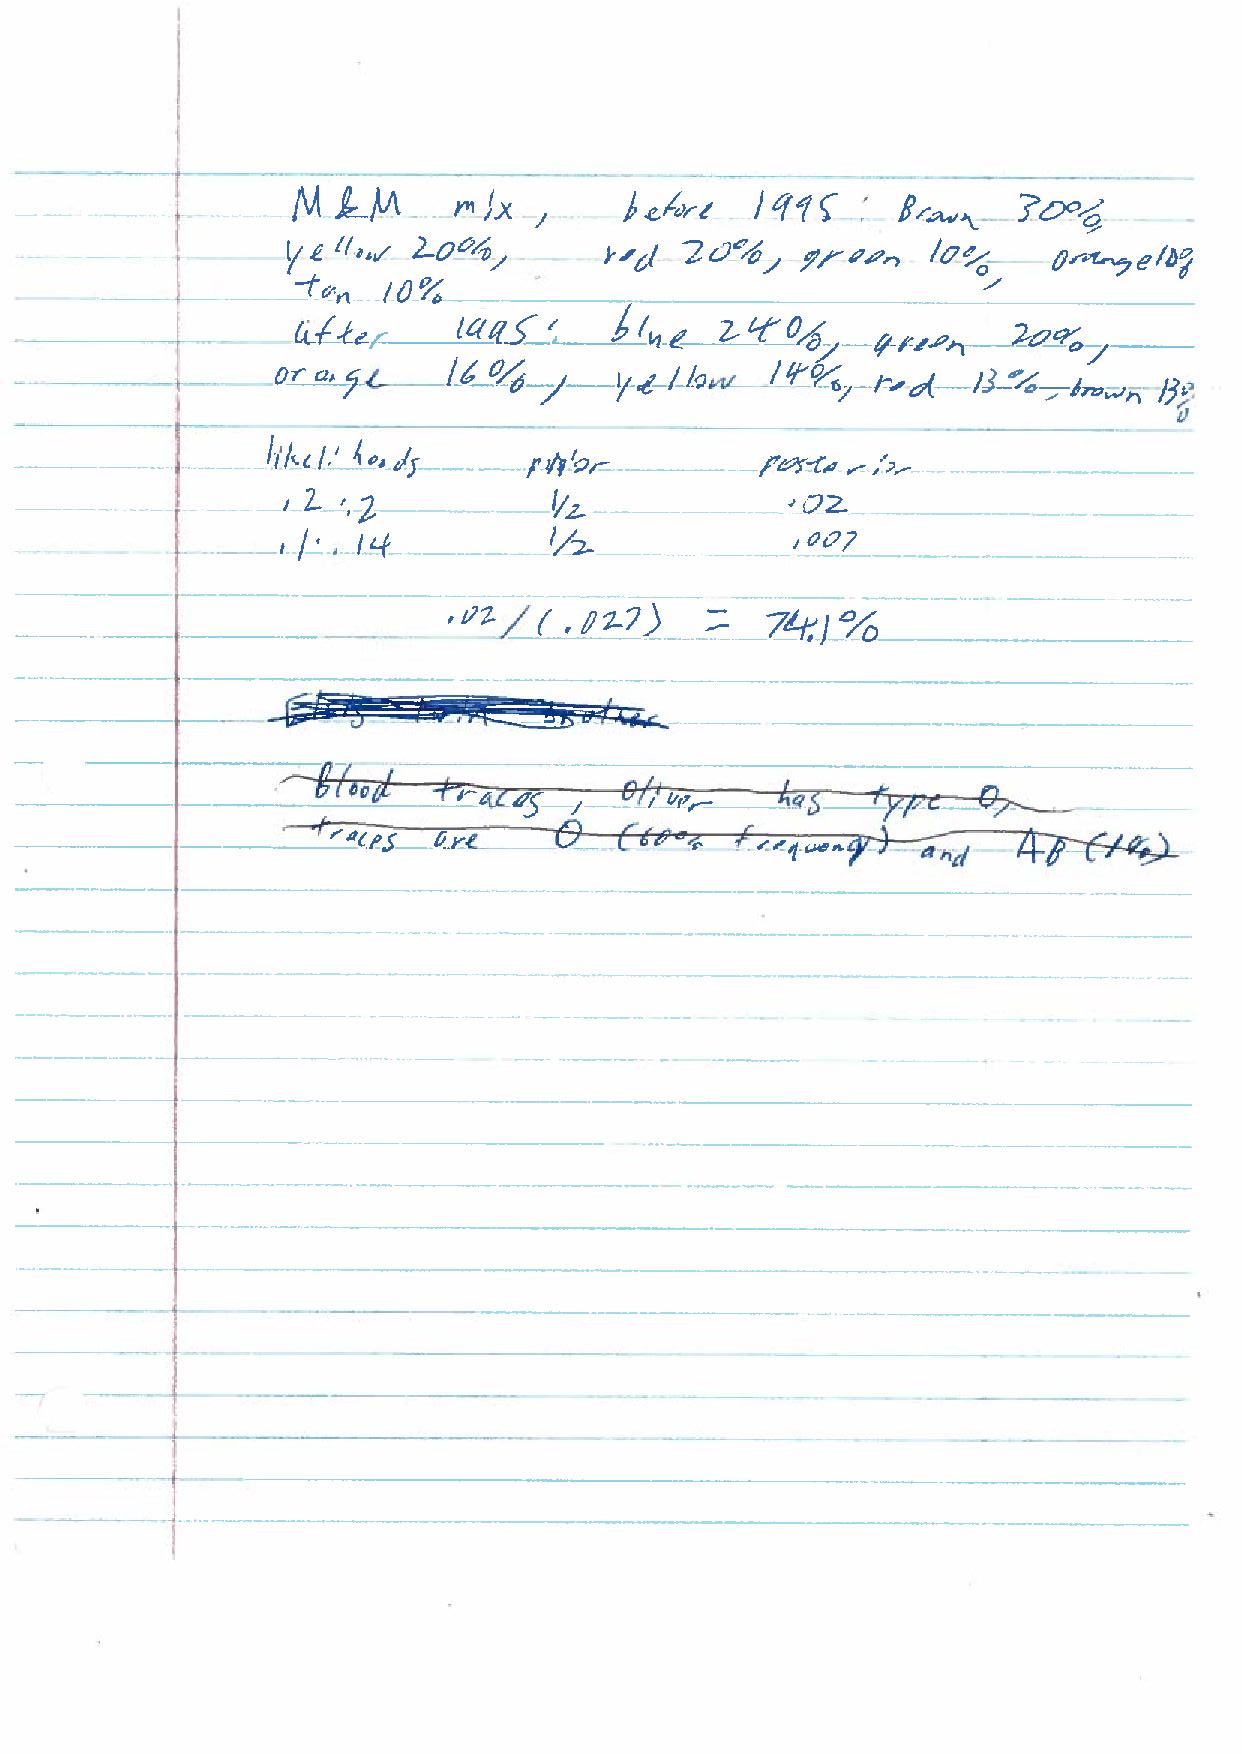 M & M mix, before 1995: Brown 30%,
yellow 20%, red 20%, green 10%, orange 10%
tan 10%
after 1995: blue 24%, green 20%,
orange 16%, yellow 14%, red 13%, brown 13%
likelihoods prior posterior
.2 .2 1/2 .02
.1 .14 1/2 .007
.02/(.027) = 74.1%
Blood traces, Oliver has type O,
traces are O (60% frequency) and AB (1%)